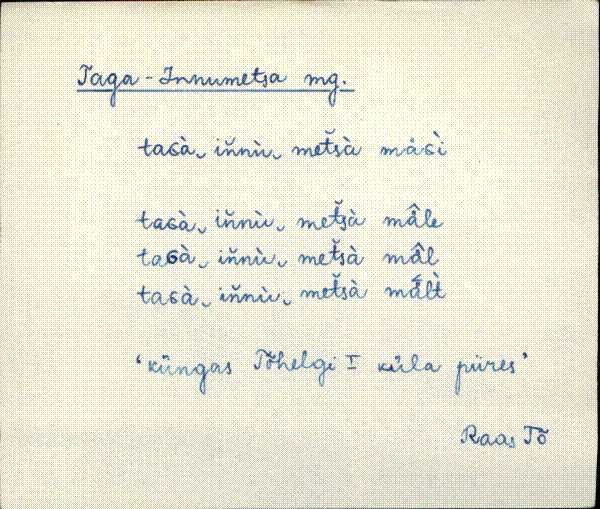 Taga-Innumetsa mg.
taɢà‿ iň̄nù‿ metš̆à mäɢì
taɢà‿ iň̄nù‿ metš̆à mâle
taɢà‿ iň̄nù‿ metš̆à mâl
taɢà‿ iň̄nù‿ metš̆à mâlt̀
‘küngas Tõhelgi I küla piires’
Raas Tõ